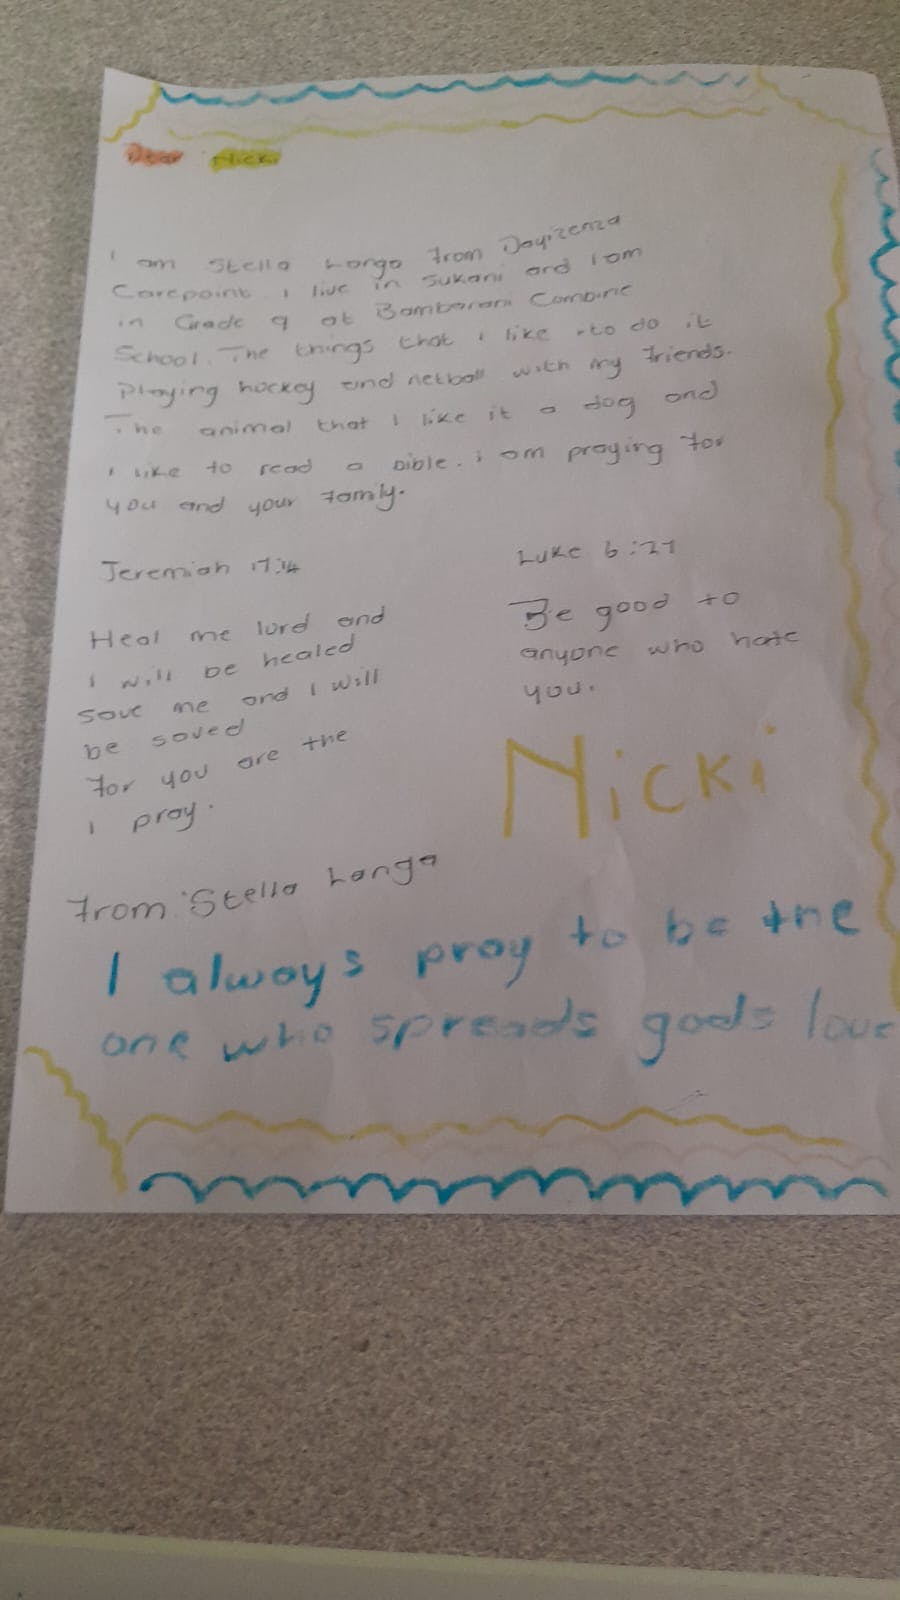 Dear Nicki
I am Stella Longa from Dayizenza
Carepoint. I live in Sukani and I am
in Grade 9 at Bambarani Combine
School. The things that i like to do it
Playing hockey and netball with my friends.
The animal that I like it a dog and
I like to read a bible. i am praying for
you and your family.
Jeremiah 17:14
Heal me lord and
I will be healed
save me and I will
be saved
for you are the
i pray.
Luke 6:27
Be good to
anyone who hate
you.
Nicki
From Stella Longa
I always pray to be the
one who spreads gods love